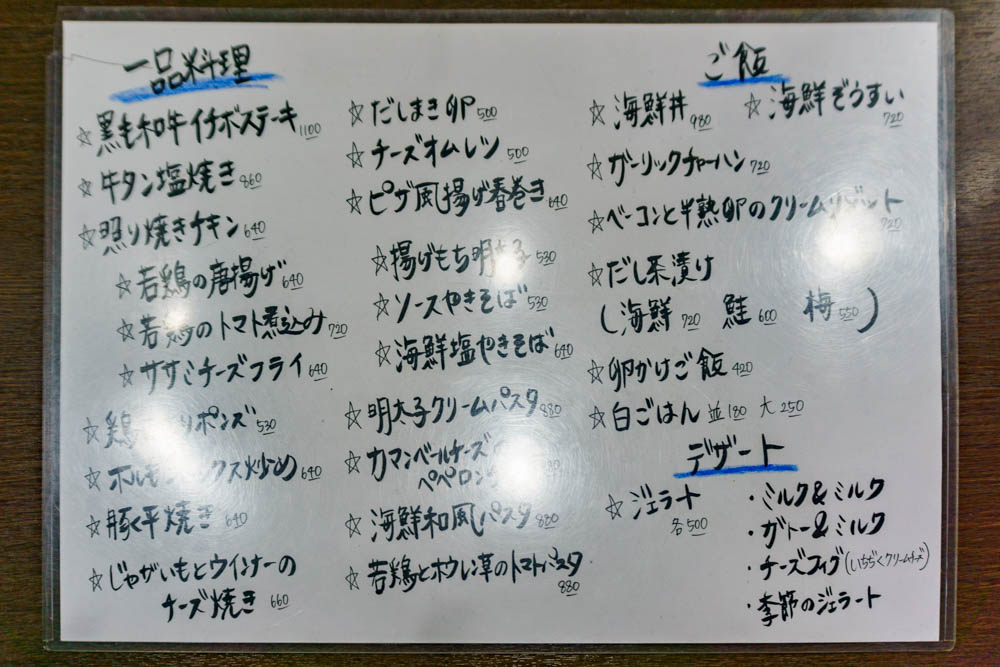 一品料理
☆黒毛和牛イチボステーキ 1100
☆牛タン塩焼き 860
☆照り焼きチキン 640
☆若鶏の唐揚げ 640
☆若鶏のトマト煮込み 720
☆ササミチーズフライ 640
☆鶏 ポンズ 530
☆ホルモン ックス炒め 640
☆豚平焼き 640
☆じゃがいもとウインナーの
チーズ焼き 660
☆だしまき卵 500
☆チーズオムレツ 500
☆ピザ風揚げ春巻き 640
☆揚げもち明太子 530
☆ソースやきそば 530
☆海鮮塩やきそば 640
☆明太子クリームパスタ 880
☆カマンベールチーズ
ペペロン
☆海鮮和風パスタ 880
☆若鶏とホウレン草のトマトパスタ
880
ご飯
☆海鮮丼 980 ☆海鮮ぞうすい 720
☆ガーリックチャーハン 720
☆ベーコンと半熟卵のクリームリゾット 720
☆だし茶漬け
(海鮮 720 鮭 600 梅 550)
☆卵かけご飯 420
☆白ごはん 並180 大250
デザート
☆ジェラート
各500
・ミルク&ミルク
・ガトー&ミルク
・チーズフィグ(いちぢくクリームチーズ)
・季節のジェラート